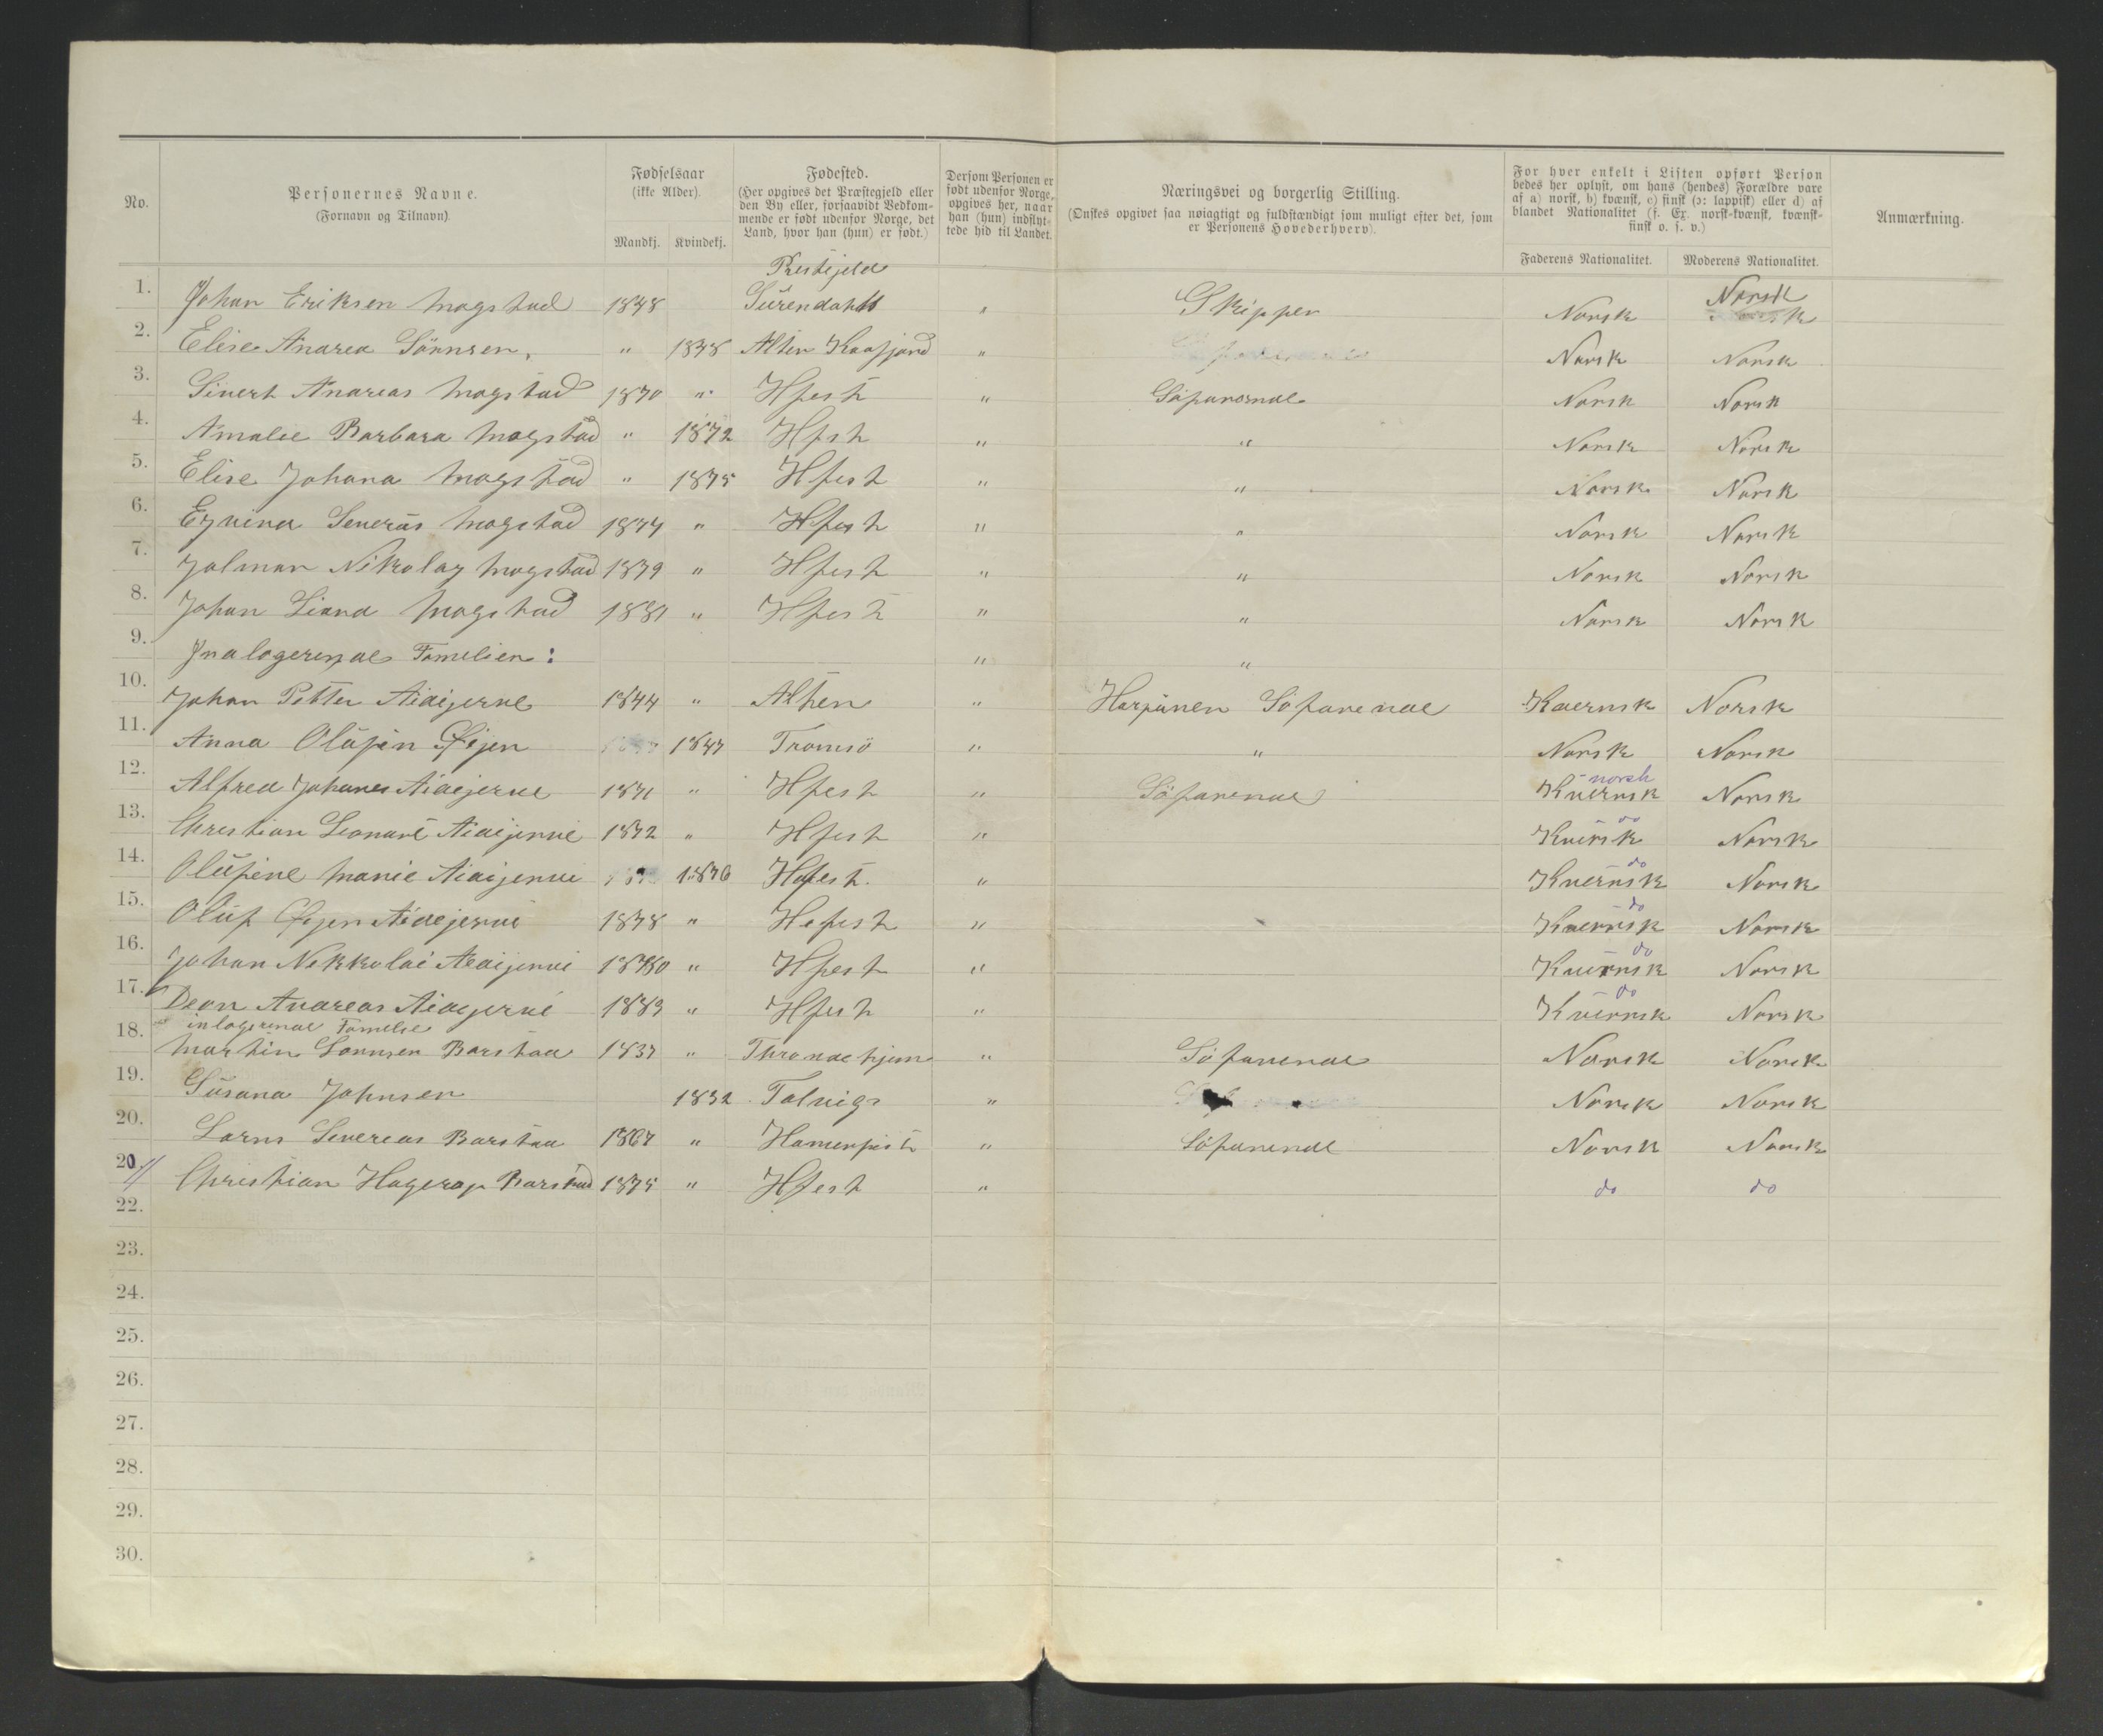 No.
Personernes Navne.
(Fornavn og Tilnavn).
Fødselsaar
(ikke Alder).
Mandkj. Kvindekj.
Fødested.
(Her opgives det Præstegjeld eller
den By eller, forsaavidt Vedkom-
mende er født udenfor Norge, det
Land, hvor han (hun) er født.)
Dersom Personen er
født udenfor Norge,
opgives her, naar
han (hun) indflyt-
tede hid til Landet.
Næringsvei og borgerlig Stilling.
(Ønskes opgivet saa nøiagtigt og fuldstændigt som muligt efter det, som
er Personens Hovederhverv).
For hver enkelt i Listen opført Person
bedes her oplyst, om hans (hendes) Forældre vare
af a) norsk, b) kvænsk, c) finsk (ɔ: lappisk) eller d) af
blandet Nationalitet (f. Ex. norsk-kvænsk, kvænsk-
finsk o. s. v.)
Faderens Nationalitet. Moderens Nationalitet.
Anmærkning.
Prestejeld
1. Johan Eriksen Mogstad 1848 Surendahl " Skipper Norsk Norsk
2. Elise Andrea Sönnsen, " 1848 Alten Kaafjord " Norsk Norsk
3. Sivert Andreas Mogstad 1870 " Hfest " Söfarende Norsk Norsk
4. Amalie Barbara Mogstad " 1872 Hfst " " Norsk Norsk
5. Elise Johana Mogstad " 1875 Hfest " " Norsk Norsk
6. Severin Mogstad 1877 " Hfest " " Norsk Norsk
7. Jalmar Nikolay Mogstad 1879 " Hfest " " Norsk Norsk
8. Johan Mogstad 1881 " Hfest " " Norsk Norsk
9. Indlogerende Famelien: " "
10. Johan Petter Aidijerve 1844 " Alten " Harpunen Söfarende Kvensk Norsk
11. Anna Olufin Øijen 1847 Tromsö " " Norsk Norsk
12. Alfred Johanes Aidejerve 1871 " Hfest " Söfarende Kvensk norsk Norsk
13. Christian Leonard Aidijervi 1872 " Hfest " Kvensk do Norsk
14. Olufine Marie Aidijervi 1876 Hfest. " Kvensk do Norsk
15. Oluf Øijen Aidejervi 1878 " Hfest " Kvensk do Norsk
16. Johan Nikkolai Aidijervi 1880 " Hfest " Kvensk do Norsk
17. Dean Andreas Aidejervi 1883 " Hfest " Kvensk do Norsk
inlogerende Famelie
18. Martin Larnsen Barstad 1837 " Throndehjem " Söfarende Norsk Norsk
19. Susana Johnsen 1832 Talvigs " Norsk Norsk
20. Larns Severeas Barstad 1867 " Hamerfest " Söfarende Norsk Norsk
20. Christian Hagerup Barstad 1875 " Hfest " do do
22.
23.
24.
25.
26.
27.
28.
29.
30.